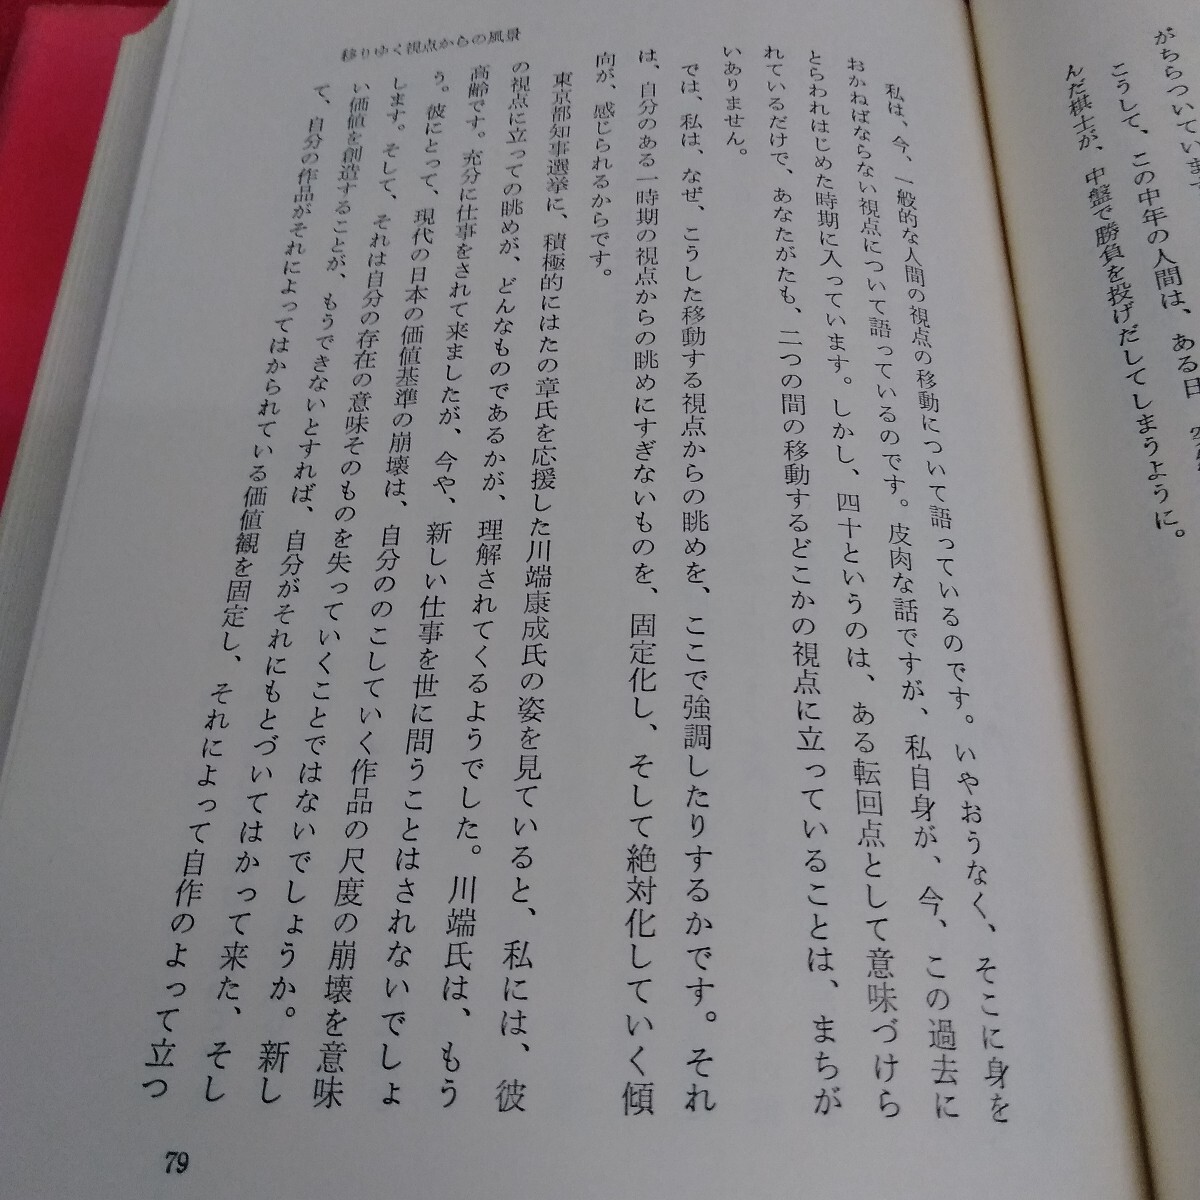 がちらついています
こうして、この中年の人間は、ある日
んだ棋士が、中盤で勝負を投げだしてしまうように。
私は、今、一般的な人間の視点の移動について語っているのです。いやおうなく、そこに身を
おかねばならない視点について語っているのです。皮肉な話ですが、私自身が、今、この過去に
とらわれはじめた時期に入っています。しかし、四十というのは、ある転回点として意味づけら
れているだけで、あなたがたも、二つの間の移動するどこかの視点に立っていることは、まちが
いありません。
では、私は、なぜ、こうした移動する視点からの眺めを、ここで強調したりするかです。それ
は、自分のある一時期の視点からの眺めにすぎないものを、固定化し、そして絶対化していく傾
向が、感じられるからです。
東京都知事選挙に、積極的にはたの章氏を応援した川端康成氏の姿を見ていると、私には、彼
の視点に立っての眺めが、どんなものであるかが、理解されてくるようでした。川端氏は、もう
高齢です。充分に仕事をされて来ましたが、今や、新しい仕事を世に問うことはされないでしょ
う。彼にとって、現代の日本の価値基準の崩壊は、自分ののこしていく作品の尺度の崩壊を意味
します。そして、それは自分の存在の意味そのものを失っていくことではないでしょうか。新し
い価値を創造することが、もうできないとすれば、自分がそれにもとづいてはかって来た、そし
て、自分の作品がそれによってはかられている価値観を固定し、それによって自作のよって立つ
移りゆく視点からの風景
79